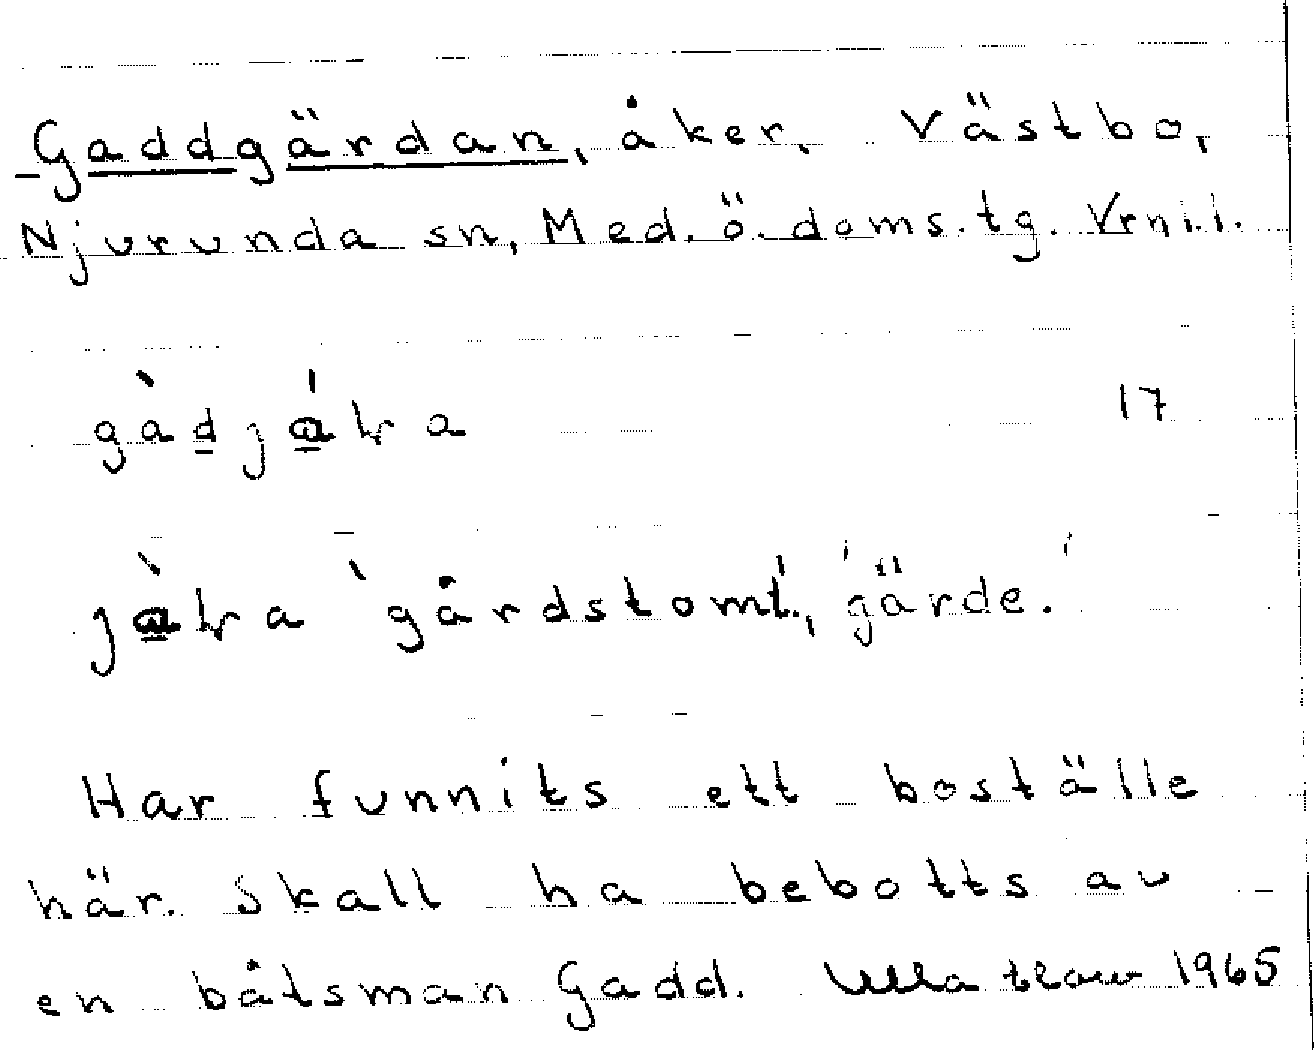 Gaddgärdan, åker, Västbo,
Njurunda sn, Med. ö. doms. tg. Vrnl.l.
17
'gårdstomt', 'gärde.'
Har funnits ett boställe
här. Skall ha bebotts av
en båtsman Gadd. Ulla 1965